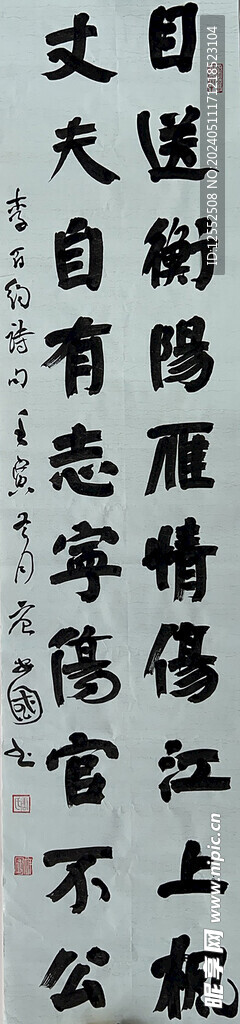 目送衡陽雁情傷江上楓
丈夫自有志寧傷官不公
李百約詩句壬寅冬月
ID:12552508 NO:20240511171218523104
昵享网 www.nipic.cn